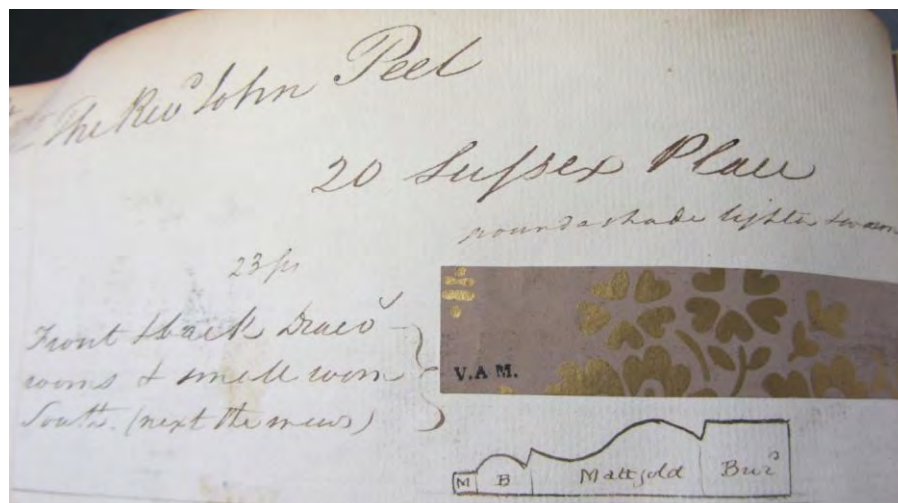 The Revd John Peel
20 Sussex Place
round a shade lighter & warm
23 ps
Front & back Drawg
rooms & small room
South. (next the mews)
V.A M.
M B Mattgold Burd